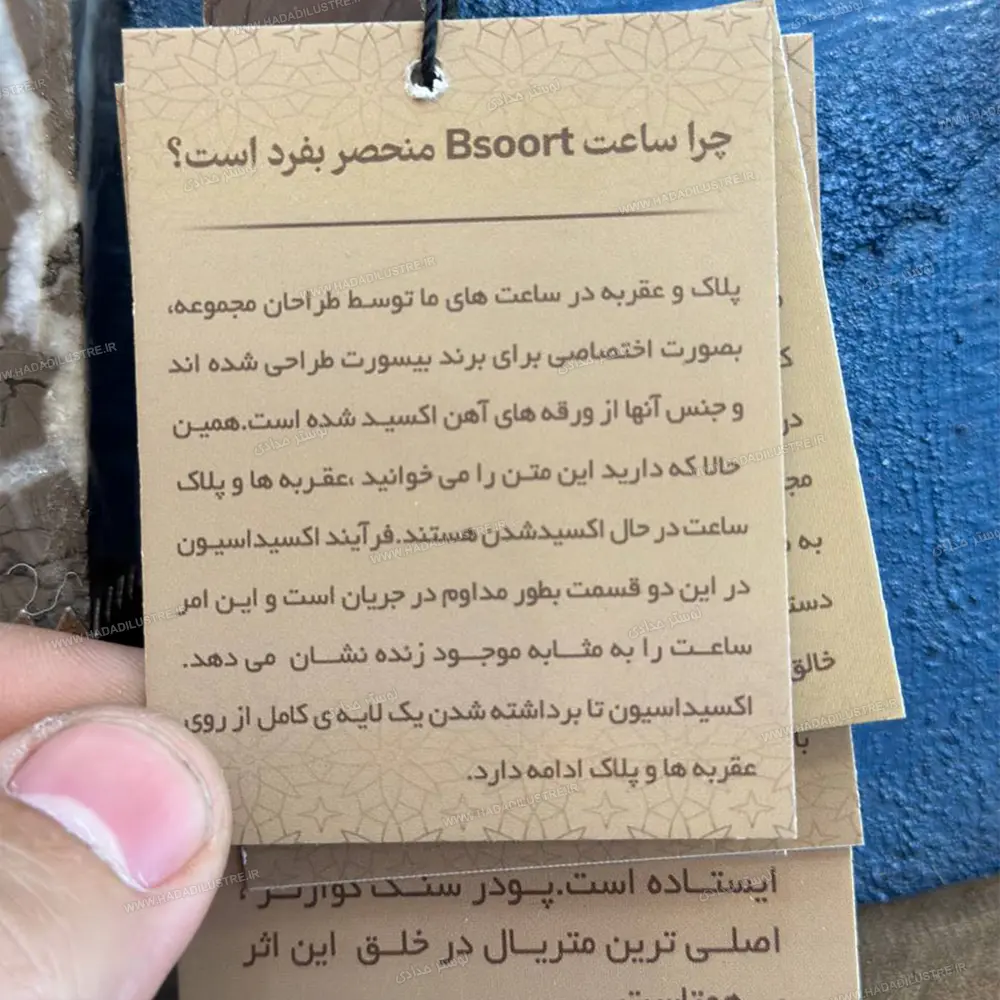 چرا ساعت Bsoort منحصر بفرد است؟
پلاک و عقربه در ساعت های ما توسط طراحان مجموعه،
بصورت اختصاصی برای برند بیسورت طراحی شده اند
و جنس آنها از ورقه های آهن اکسید شده است.همین
حالا که دارید این متن را می خوانید ،عقربه ها و پلاک
ساعت در حال اکسیدشدن هستند.فرآیند اکسیداسیون
در این دو قسمت بطور مداوم در جریان است و این امر
ساعت را به مثابه موجود زنده نشان می دهد.
اکسیداسیون تا برداشته شدن یک لایه ی کامل از روی
عقربه ها و پلاک ادامه دارد.
در
به
خالق
با
ایستاده است.پودر سنگ کوارتز،
اصلی ترین متریال در خلق این اثر
WWW.HADADILUSTRE.IR
لوستر حدادی